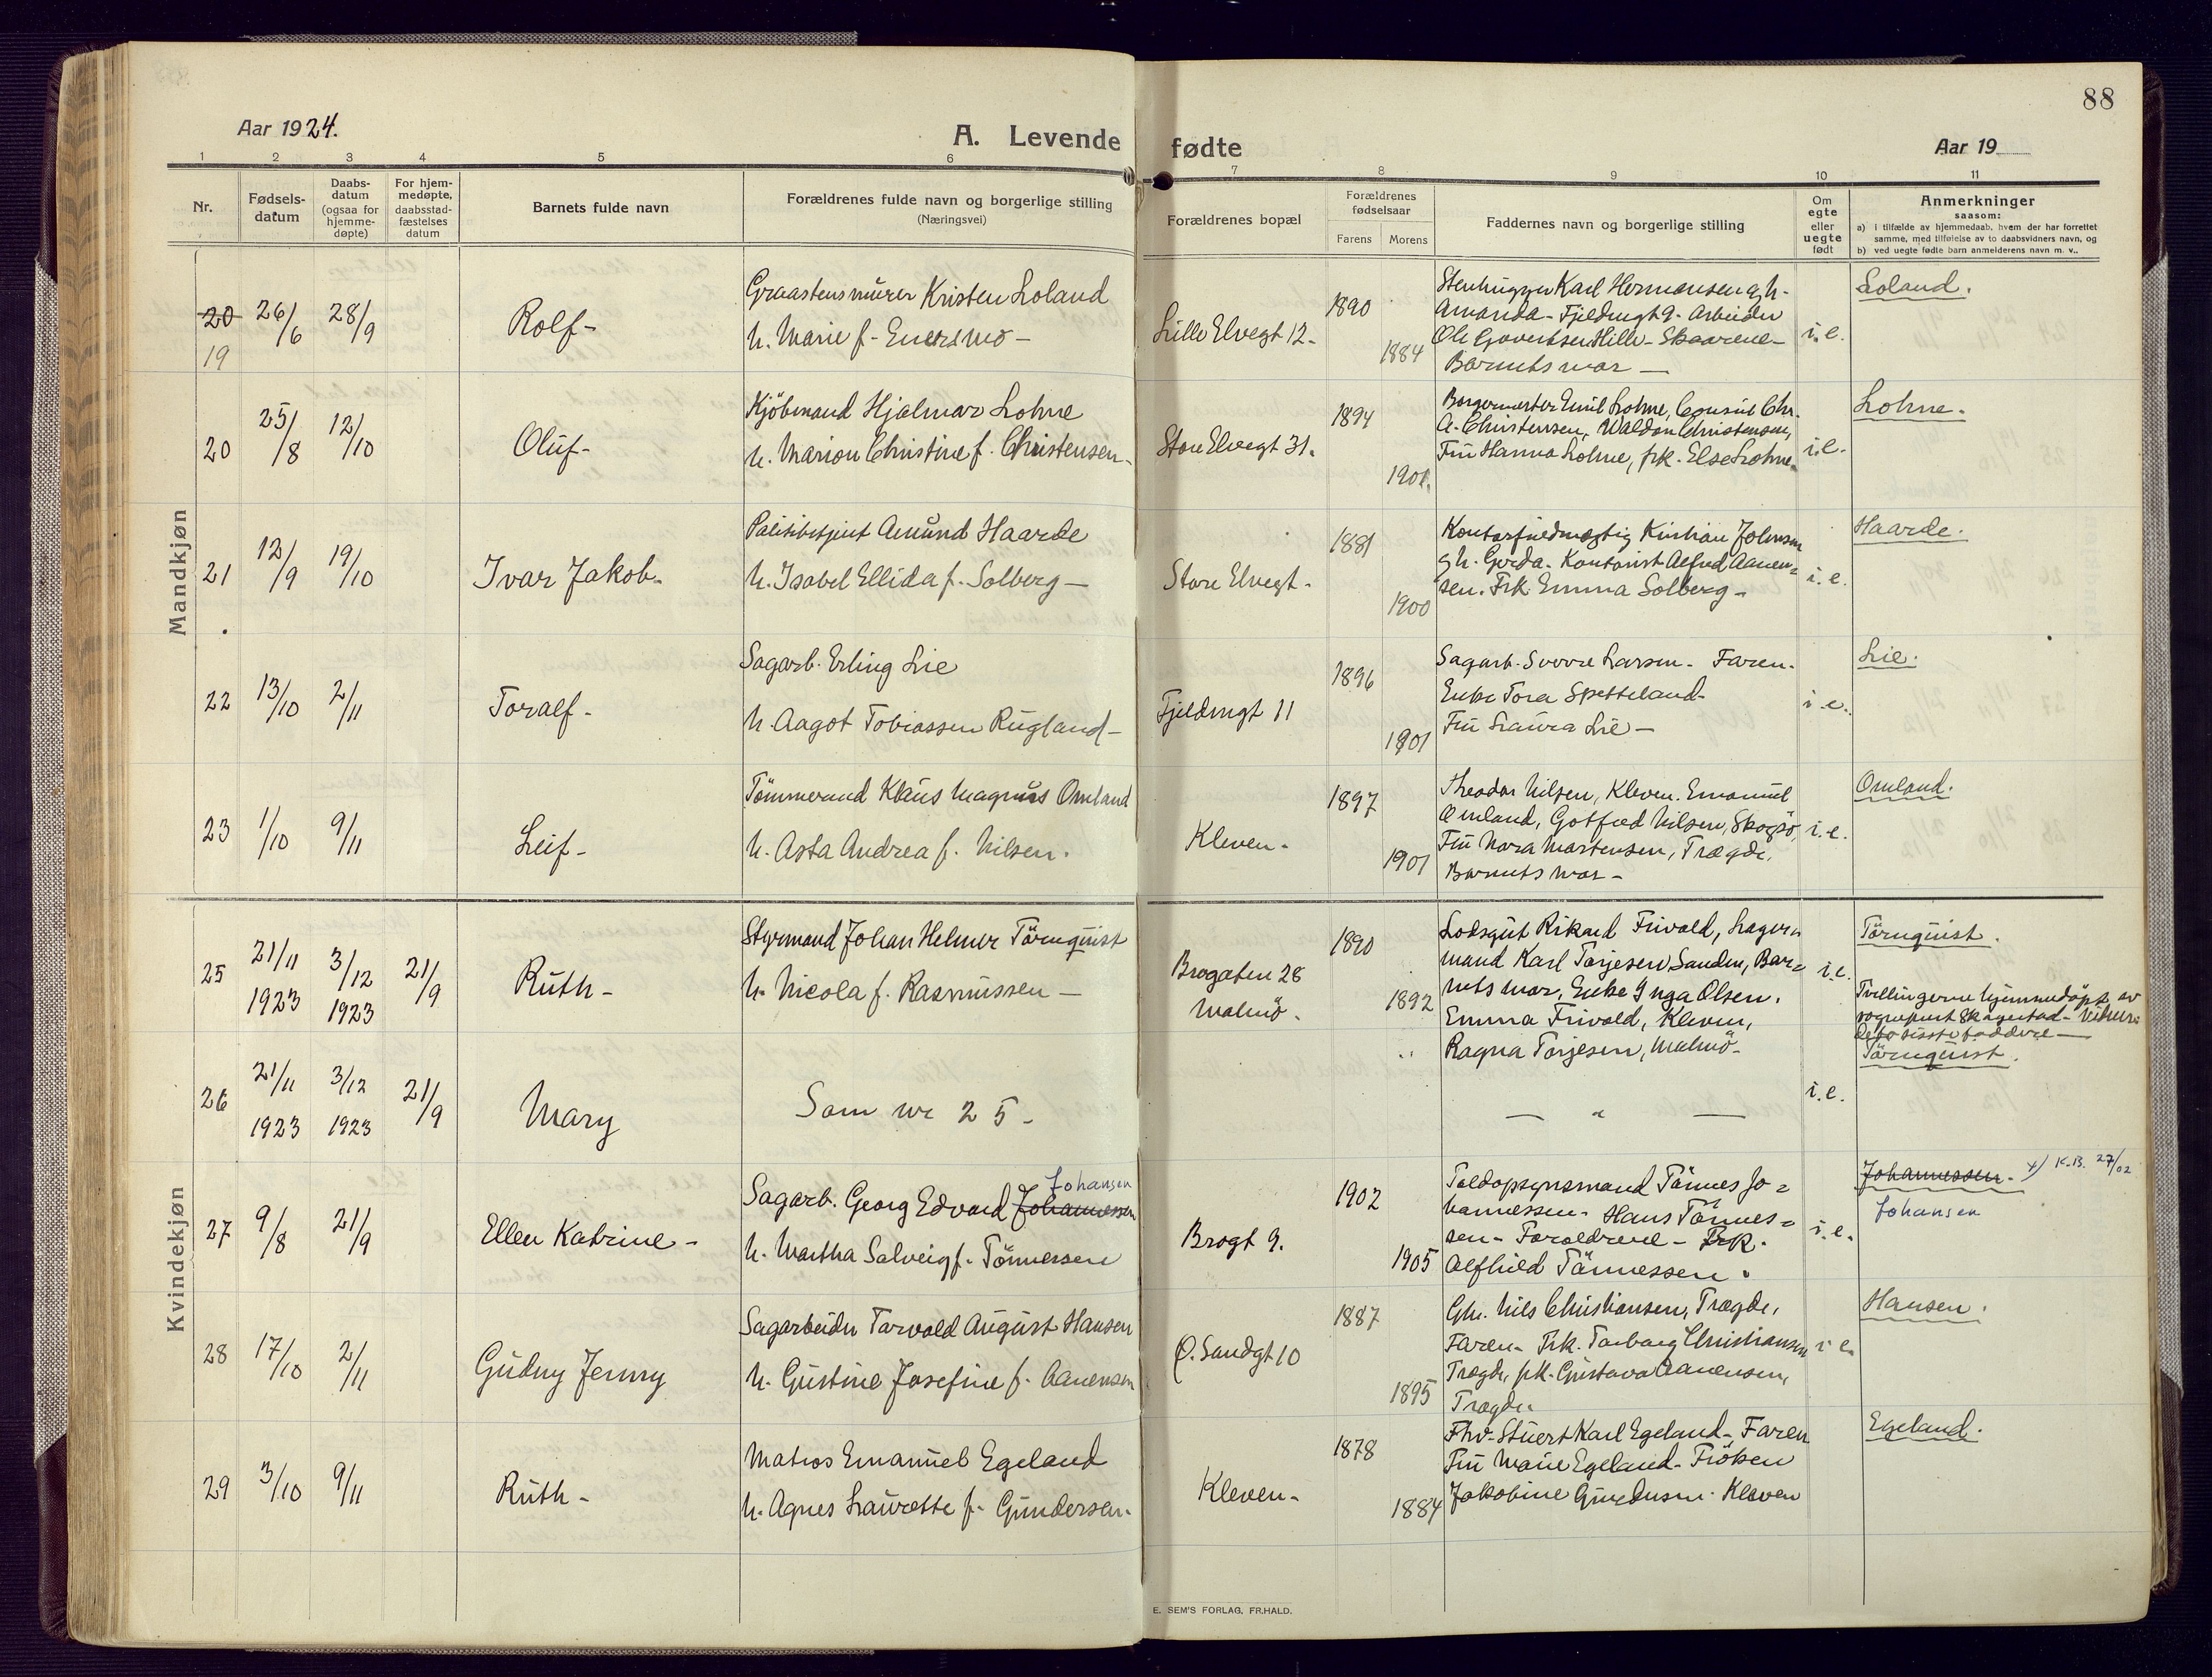 88
Aar 1924.
A. Levende fødte
Aar 19
1 2 3 4 5 6 7 8 9 10 11
Nr.
Fødsels-
datum
Daabs-
datum
(ogsaa for
hjemme-
døpte)
For hjem-
medøpte,
daabsstad-
fæstelses
datum
Barnets fulde navn
Forældrenes fulde navn og borgerlige stilling
(Næringsvei)
Forældrenes bopæl
Forældrenes
fødselsaar
Farens Morens
Faddernes navn og borgerlige stilling
Om
egte
eller
uegte
født
Anmerkninger
saasom:
a) i tilfælde av hjemmedaab, hvem der har forrettet
samme, med tilføielse av to daabsvidners navn, og
b) ved uegte fødte barn anmelderens navn m. v..
Mandkjøn
20
19
26/6
28/9
Rolf-
Graastensmurer Kristen Loland
h. Marie f-
Lille Elvegt 12-
1890
1884
Stenhugger Karl Hermansen gh-
Amanda- Fjeldrugt 9- Arbeider
Ole Hille- Skaarene-
Barnets mor —
i.e.
Loland.
20
25/8
12/10
Oluf-
Kjöbmand Hjalmar Lohne
h. Marion Christine f. Christensen-
Store Elvegt 31.
1894
1901.
Borgermester Emil Lohne, Consul Chr.
A. Christensen, Christensen,
Fru Hanna Lohne, frk. Else Lohne.
i.e.
Lohne.
21
12/9
19/10
Ivar Jakob-
Politibetjent Amund Haarde
h. Isabel Ellida f. Solberg —
Store Elvegt-
1881
1900
Kontorfuldmægtig Kristian Johnsen
gh. Gerda- Kontorist Alfred Aanen=
sen. Frk. Emma Solberg-
i.e.
Haarde.
22
13/10
2/11
Toralf-
Sagarb. Erling Lie
h. Aagot Tobiassen Rugland-
Fjeldrugt 11
1896
1901
Sagarb. Sverre Larsen- Faren-
Enke Tora Spetteland-
Fru Laura Lie —
i e.
Lie.
23
1/10
9/11
Leif-
Tömmermand Klaus Magnus Omland
h. Asta Andrea f. Nilsen.
Kleven-
1897
1901
Theodor Nilsen, Kleven. Emanuel
Omland, Gotfred Nilsen, Skogsö,
Fru Nora Mortensen, Trægde.
Barnets mor-
i.e.
Omland.
Kvindekjøn
25
21/11
1923
3/12
1923
21/9
Ruth-
Styrmand Johan Helmer Törnquist
h. Nicola f. Rasmussen —
Brogaten 28
Malmö.
1890
1892
Lodsgut Rikard Frivold, Lager=
mand Karl Torjesen, Sanden, Bar=
nets mor, Enke Inga Olsen.
Emma Frivold, Kleven,
Ragna Torjesen, Malmö-
i.e.
Törnquist.
Tvillingerne hjemmedöpt av
sogneprest Skagestad-
de to sisste faddere —
26
21/11
1923
3/12
1923
21/9
Mary
Som nr 25-
— " —
i.e.
Törnquist.
27
9/8
21/9
Ellen Katrine-
Johansen
Sagarb. Georg Edvard Johannessen
h. Martha Solveig f. Tönnessen
Brogt 9.
1902
1905
Toldopsynsmand Tönnes Jo=
hannessen- Hans Tönnes=
sen- Foreldrene- Frk.
Alfhild Tönnessen.
i.e.
Johannessen. x) K.B. 27/02
Johansen
28
17/10
2/11
Gudny Jenny
Sagarbeider Torvald August Hansen
h. Gustine Josefine f. Aanensen
Ø. Sandgt 10
1887
1895
Gh. Nils Christiansen, Trægde,
Faren- Frk. Torborg Christiansen
Trægde, frk. Gustava Aanensen,
Trægde.
i e.
Hansen.
29
3/10
9/11
Ruth-
Matros Emanuel Egeland
h. Agnes Laurette f. Gundersen-
Kleven-
1878
1884
Fhv. Stuert Karl Egeland- Faren
Fru Marie Egeland- Fröken
Jakobine Gundersen. Kleven
Egeland.
E. SEM'S FORLAG, FR.HALD.